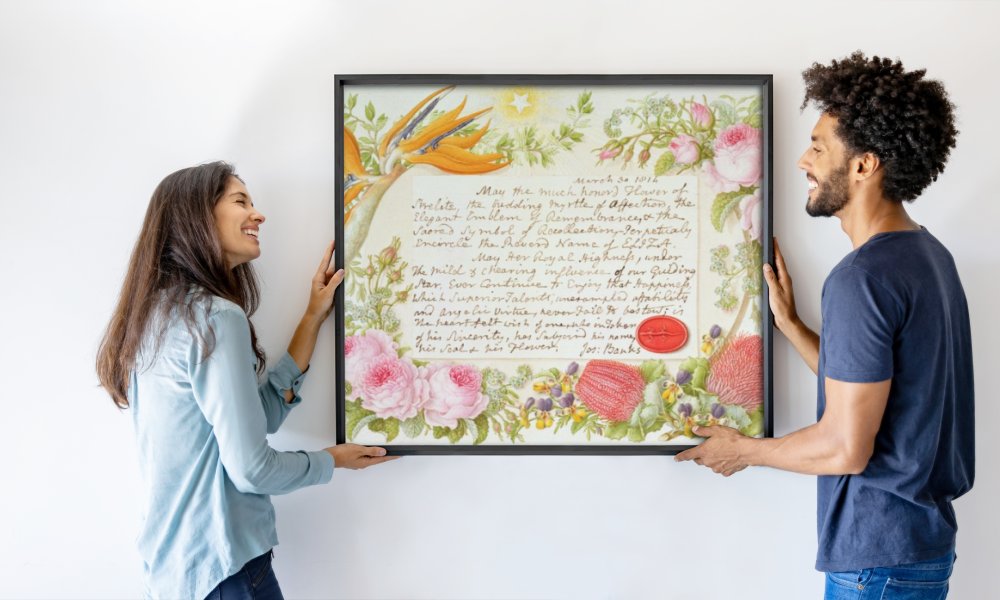 March 30 1814
May the much honord Flower of
Strelitz the budding Myrtle of Affection, the
Elegant Emblem of Remembrance, & the
Sacred Symbol of Recollection, Perpetualy
Encorcle the Reverd Name of ELIZA.
May Her Royal Highness, under
the mild & chearing influence of our Guiding
Star, Ever Continue to Enjoy that Happiness,
Which Superior Talents, unexampled affability
and Angelic Virtue, never fail to bestow; is
the heart felt wish of one, who in Token
of his Sincerity, has Subjoind his name,
his Seal & his Flower. Jos: Banks